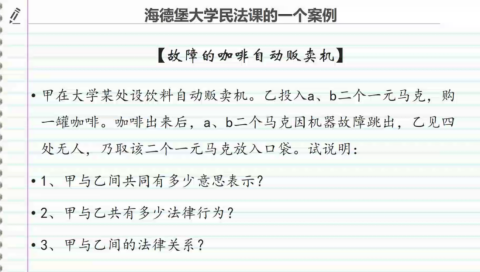 海德堡大学民法课的一个案例
【故障的咖啡自动贩卖机】
•甲在大学某处设饮料自动贩卖机。乙投入a、b二个一元马克，购
一罐咖啡。咖啡出来后，a、b二个马克因机器故障跳出，乙见四
处无人，乃取该二个一元马克放入口袋。试说明：
•1、甲与乙间共同有多少意思表示？
•2、甲与乙共有多少法律行为？
•3、甲与乙间的法律关系？